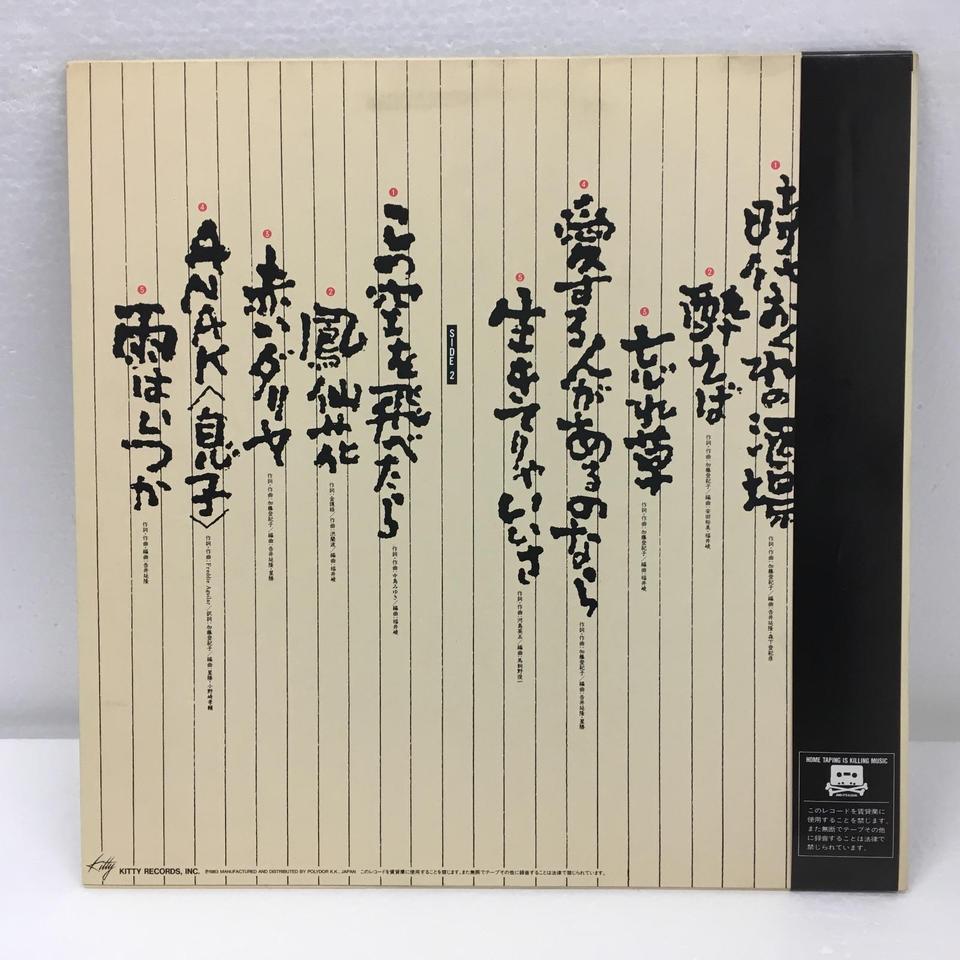 ❶
時代おくれの酒場
作詞・作曲:加藤登紀子/編曲:告井延隆・森下登紀彦
❷
酔えば
作詞・作曲:加藤登紀子/編曲:安田裕美・福井峻
❸
忘れ草
作詞・作曲:加藤登紀子/編曲:福井峻
❹
愛する人があるのなら
作詞・作曲:加藤登紀子/編曲:告井延隆・星勝
❺
生きてりゃいいさ
作詞・作曲:河島英五/編曲:馬飼野俊一
SIDE 2
❶
この空を飛べたら
作詞・作曲:中島みゆき/編曲:福井峻
❷
鳳仙花
❸
赤いダリヤ
作詞・作曲:加藤登紀子/編曲:告井延隆・星勝
❹
ANAK〈息子〉
作詞・作曲:Freddie Aguilar/訳詞:加藤登紀子/編曲:星勝・小野崎孝輔
❺
雨はいつか
作詞・作曲・編曲:告井延隆
HOME TAPING IS KILLING MUSIC
このレコードを賃貸業に
使用することを禁じます。
また無断でテープその他
に録音することは法律で
禁じられています。
Kitty
KITTY RECORDS, INC. ℗1983 MANUFACTURED AND DISTRIBUTED BY POLYDOR K.K., JAPAN このレコードを賃貸業に使用することを禁じます。また無断でテープその他に録音することは法律で禁じられています。